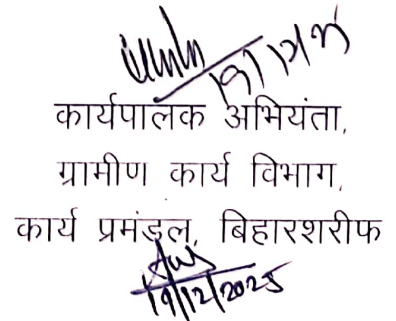 कार्यपालक अभियंता,
ग्रामीण कार्य विभाग,
कार्य प्रमंडल, बिहारशरीफ
19/12/2025